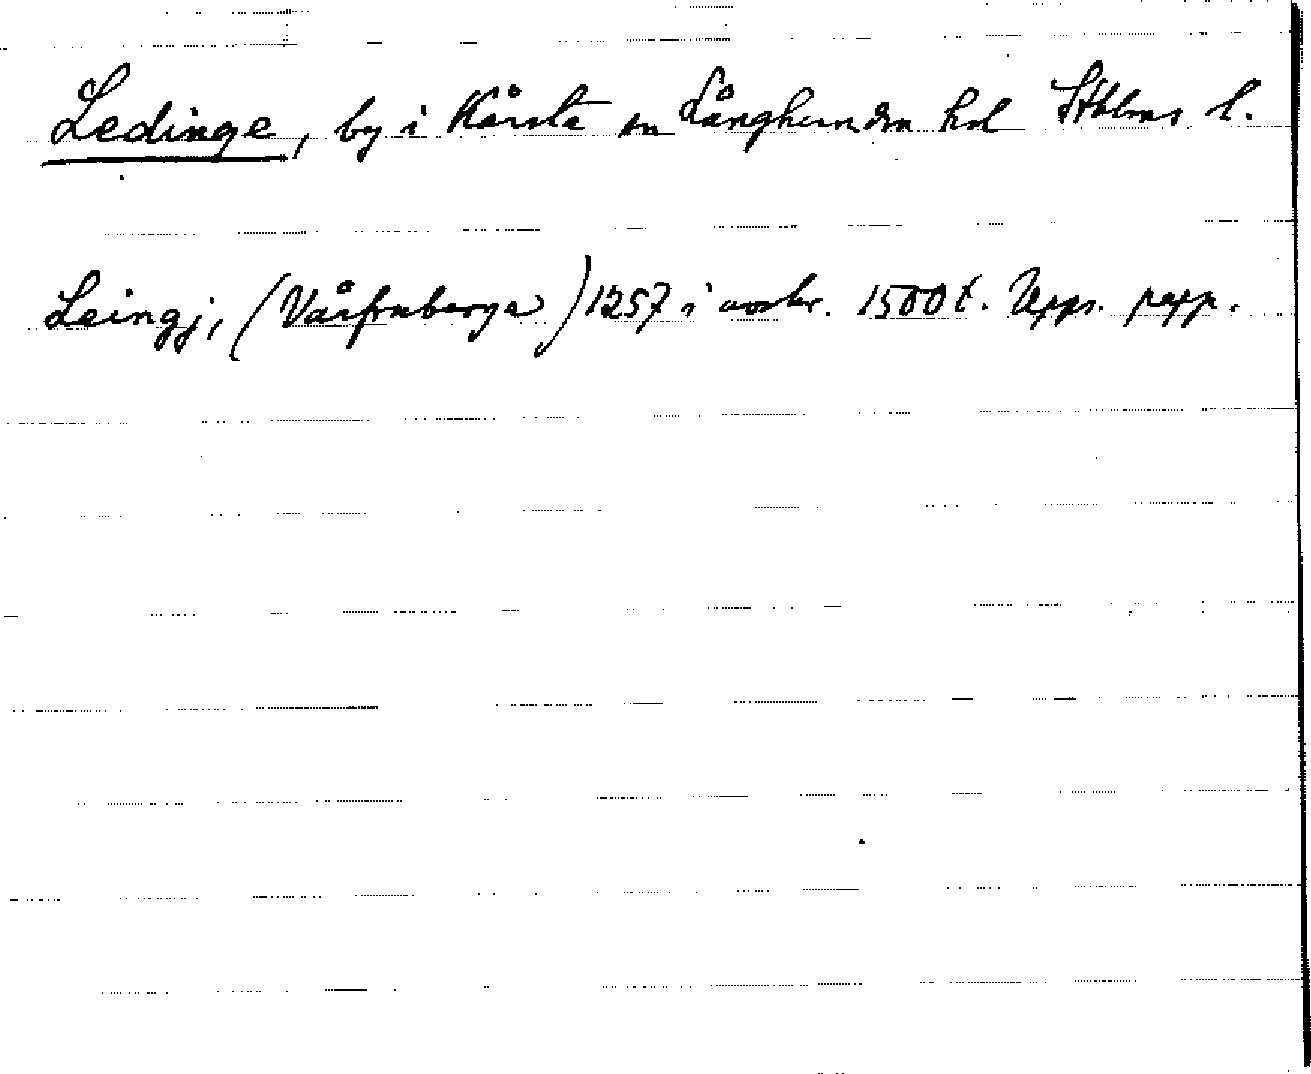 Ledinge, by i Kårsta sn Långhundra hd Sthlms l.
Leingj, (Vårfruberga) 1257 i avskr. 1500 t. Upps. papp.